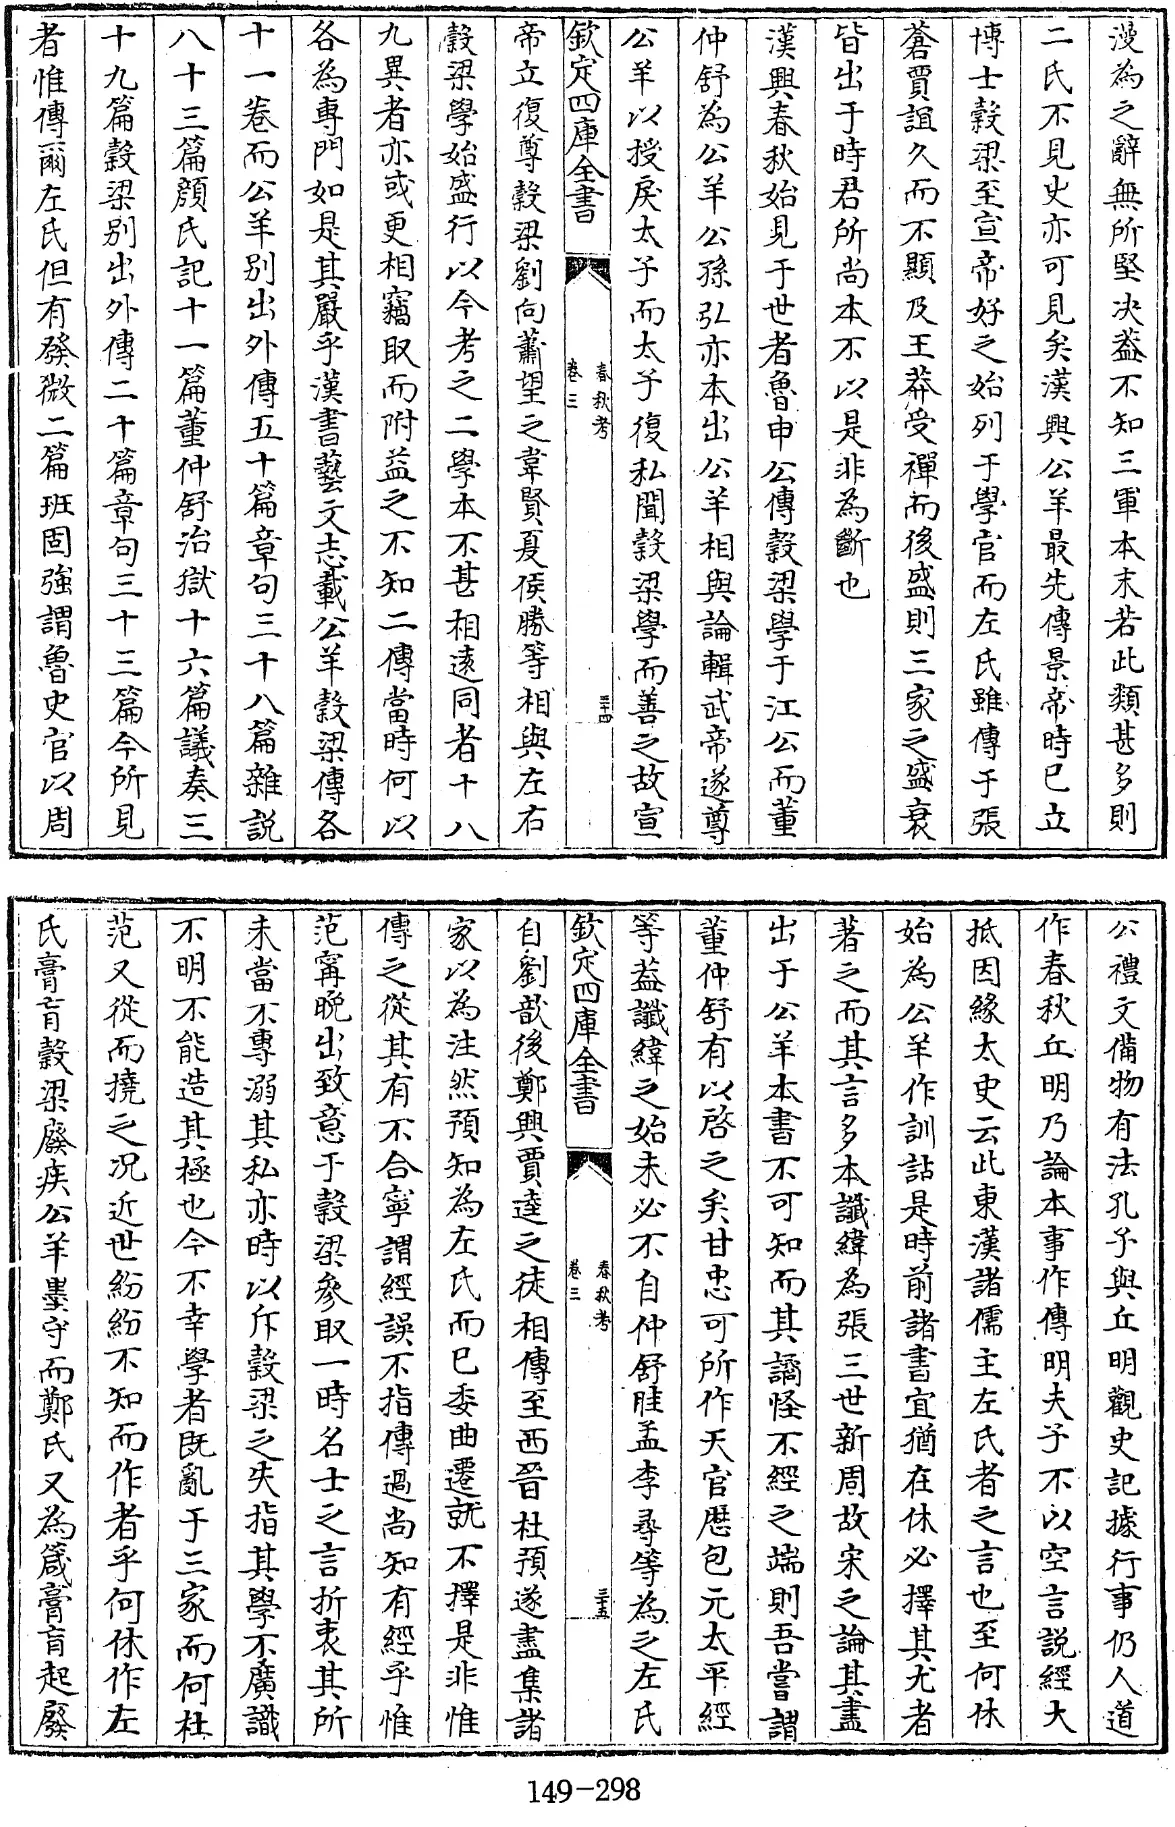 漫為之辭無所堅决葢不知三軍本末若此類甚多則
二氏不見史亦可見矣漢興公羊最先傳景帝時已立
博士穀梁至宣帝好之始列于學官而左氏雖傳于張
蒼賈誼久而不顯及王莽受禪而後盛則三家之盛衰
皆出于時君所尚本不以是非為斷也
漢興春秋始見于世者魯申公傳穀梁學于江公而董
仲舒為公羊公孫弘亦本出公羊相與論輯武帝遂尊
公羊以授戾太子而太子復私聞穀梁學而善之故宣
欽定四庫全書
春秋考
卷三
三十四
帝立復尊穀梁劉向蕭望之韋賢夏侯勝等相與左右
穀梁學始盛行以今考之二學本不甚相遠同者十八
九異者亦或更相竊取而附益之不知二傳當時何以
各為專門如是其嚴乎漢書藝文志載公羊穀梁傳各
十一卷而公羊别出外傳五十篇章句三十八篇雜説
八十三篇顔氏記十一篇董仲舒治獄十六篇議奏三
十九篇穀梁别出外傳二十篇章句三十三篇今所見
者惟傳爾左氏但有發微二篇班固強謂魯史官以周
公禮文備物有法孔子與丘明觀史記據行事仍人道
作春秋丘明乃論本事作傳明夫子不以空言説經大
抵因緣太史云此東漢諸儒主左氏者之言也至何休
始為公羊作訓詁是時前諸書宜猶在休必擇其尤者
著之而其言多本讖緯為張三世新周故宋之論其盡
出于公羊本書不可知而其譎怪不經之端則吾嘗謂
董仲舒有以啓之矣甘忠可所作天官厯包元太平經
等葢讖緯之始未必不自仲舒眭孟李尋等為之左氏
欽定四庫全書
春秋考
卷三
三十五
自劉歆後鄭興賈逵之徒相傳至西晉杜預遂盡集諸
家以為注然預知為左氏而已委曲遷就不擇是非惟
傳之從其有不合寧謂經誤不指傳過尚知有經乎惟
范寗晩出致意于穀梁參取一時名士之言折衷其所
未當不專溺其私亦時以斥穀梁之失指其學不廣識
不明不能造其極也今不幸學者既亂于三家而何杜
范又從而撓之况近世紛紛不知而作者乎何休作左
氏膏肓穀梁廢疾公羊墨守而鄭氏又為箴膏肓起廢
149-298